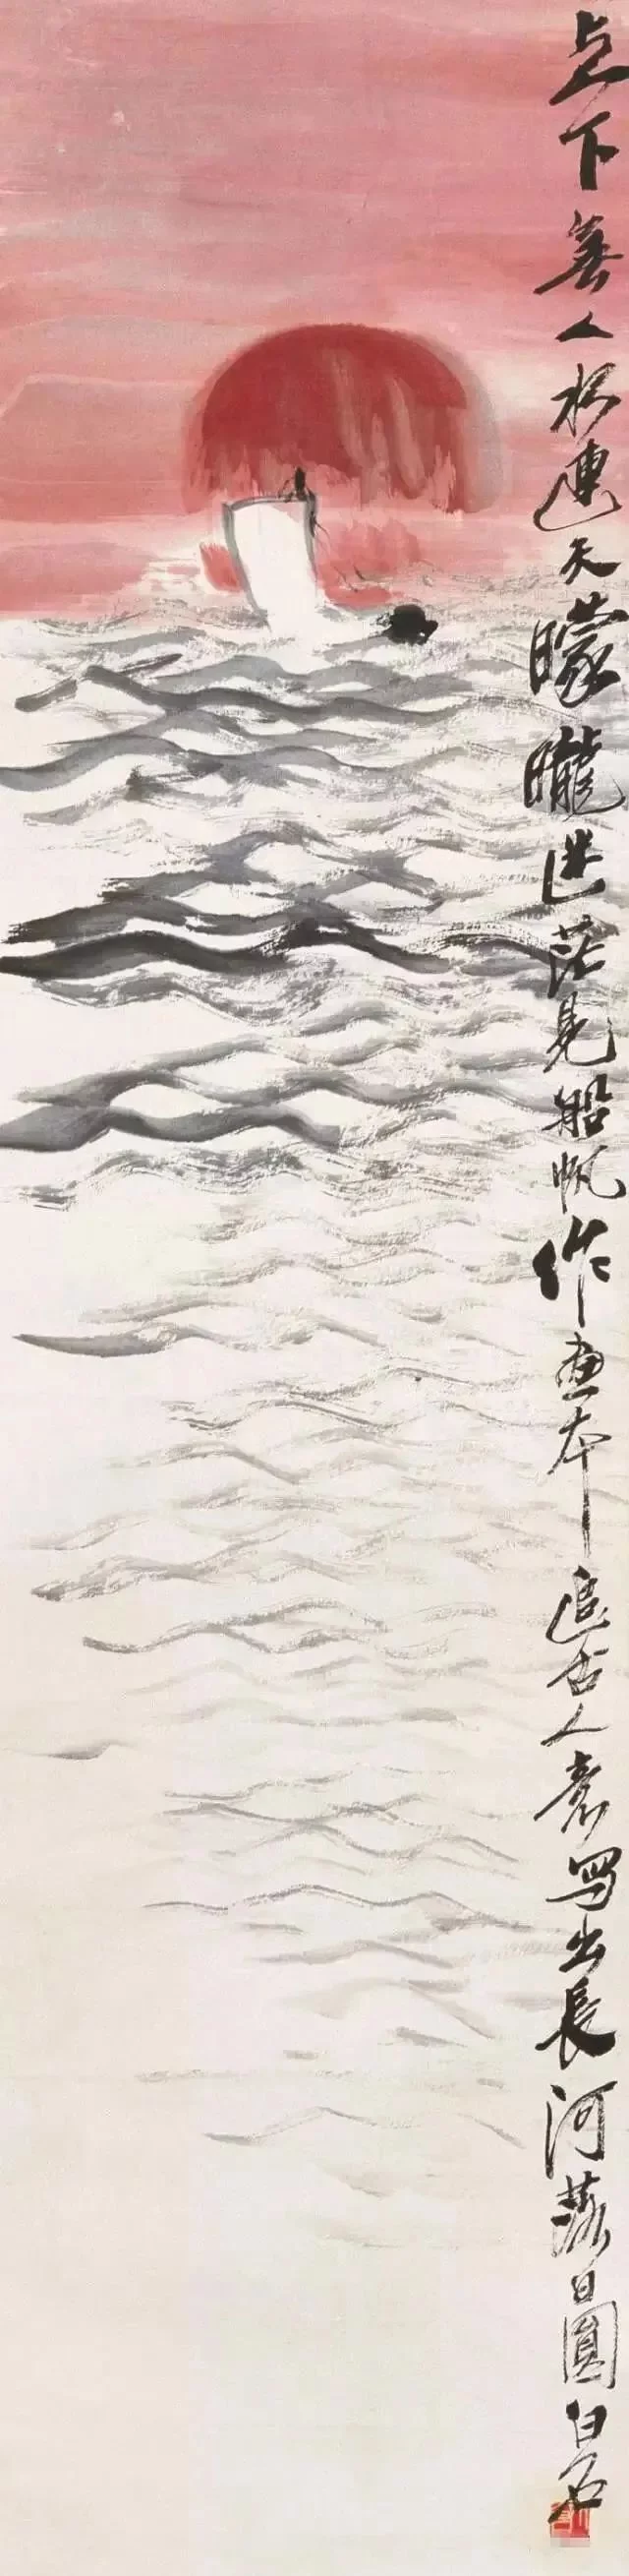 点下無人水連天曚曨迷茫見船帆作畫本追古人意寫出長河落日圓白石